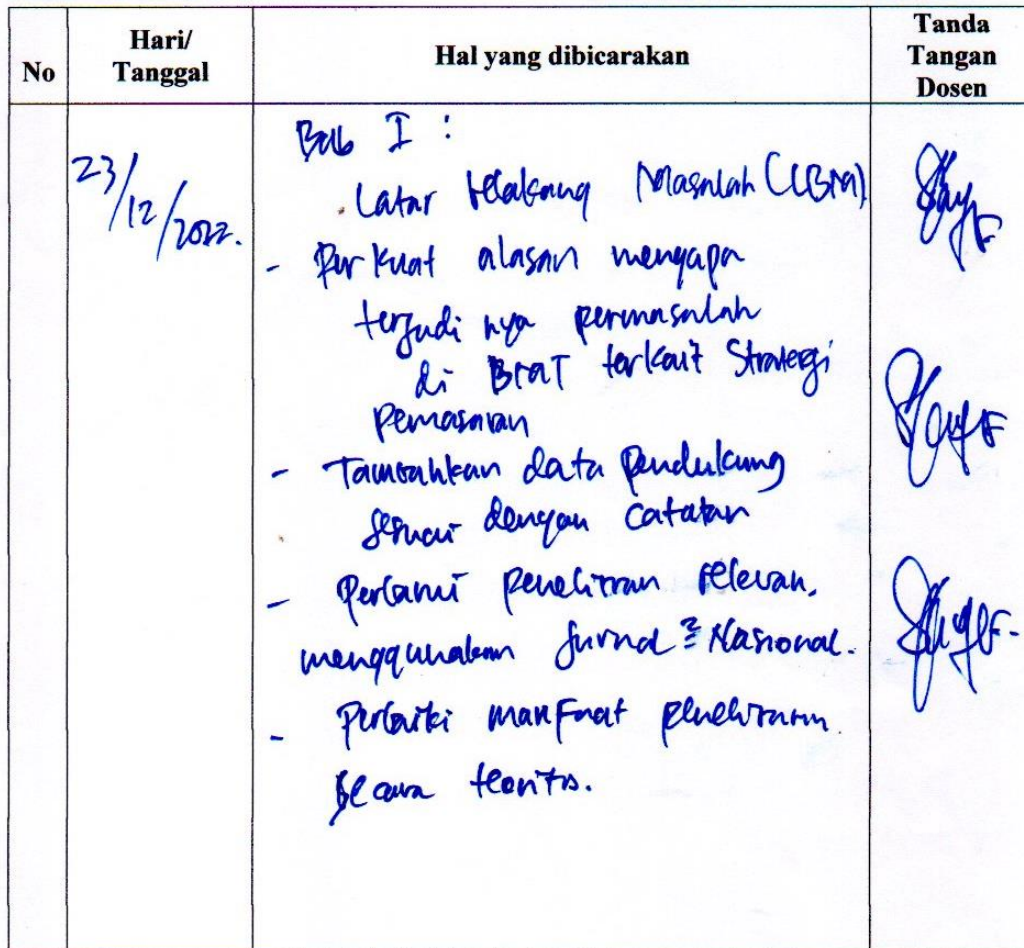 No
Hari/
Tanggal
Hal yang dibicarakan
Tanda
Tangan
Dosen
23/12/2022.
Bab I :
Latar belakang Masalah (LBM)
- Perkuat alasan mengapa
terjadi nya permasalah
di BMT terkait Strategi
pemasaran
- Tambahkan data pendukung
sesuai dengan catatan
- Perbarui penelitian relevan,
menggunakan Jurnal² Nasional.
- Perbaiki manfaat penelitian
secara teoritis.